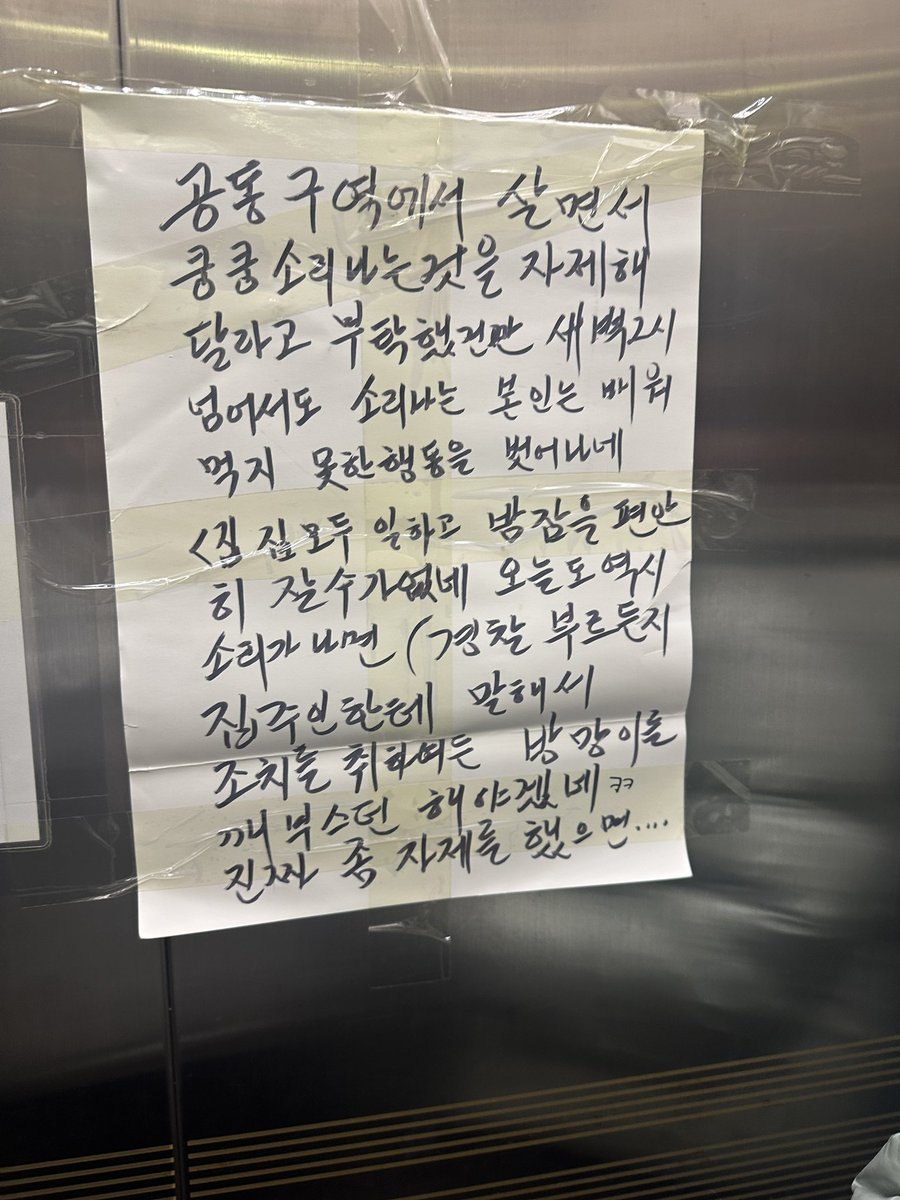 공동 구역에서 살면서
쿵쿵 소리나는것을 자제해
달라고 부탁했건만 새벽2시
넘어서도 소리나는 본인는 배워
먹지 못한행동을 벗어나네
<집 집모두 일하고 밤잠을 편안
히 잘수가없네 오늘도역시
소리가 나면 (경찰 부르든지
집주인한테 말해서
조치를 취하여든 방망이를
깨부스던 해야겠네 ㅋㅋ
진짜 좀 자제를 했으면....